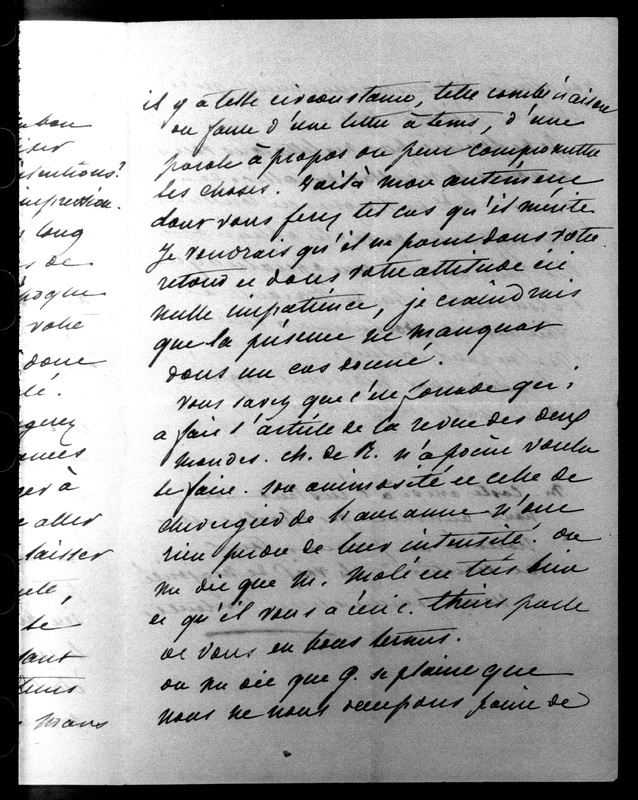 n bon
iser
intentions?
impression.
s long
es de
époque
votre
donc
lé.
gerez
ances
ger à
e aller
laisser
nte,
te
tant
leurs
mais
il y a telle circonstance, telle combinaison
ou faute d'une lettre à tems, d'une
parole à propos on peut compromettre
les choses. Voilà mon sentiment
dont vous ferez tel cas qu'il mérite
Je voudrais qu'il ne parut dans votre
retour et dans votre attitude ici
nulle impatience, je craindrais
que la présence ne manquat
dans un cas donné.
vous savez que c'est Lomade qui
a fait l'article de la revue des deux
mondes. Ch. de R. n'a point voulu
le faire. son animosité et celle de
duvergier de hauranne n'ont
rien perdu de leur intensité. on
me dit que M. Molé est très bien
et qu'il vous a écrit. thiers parle
de vous en bons termes.
on me dit que g. se plaint que
nous ne nous occupons point de